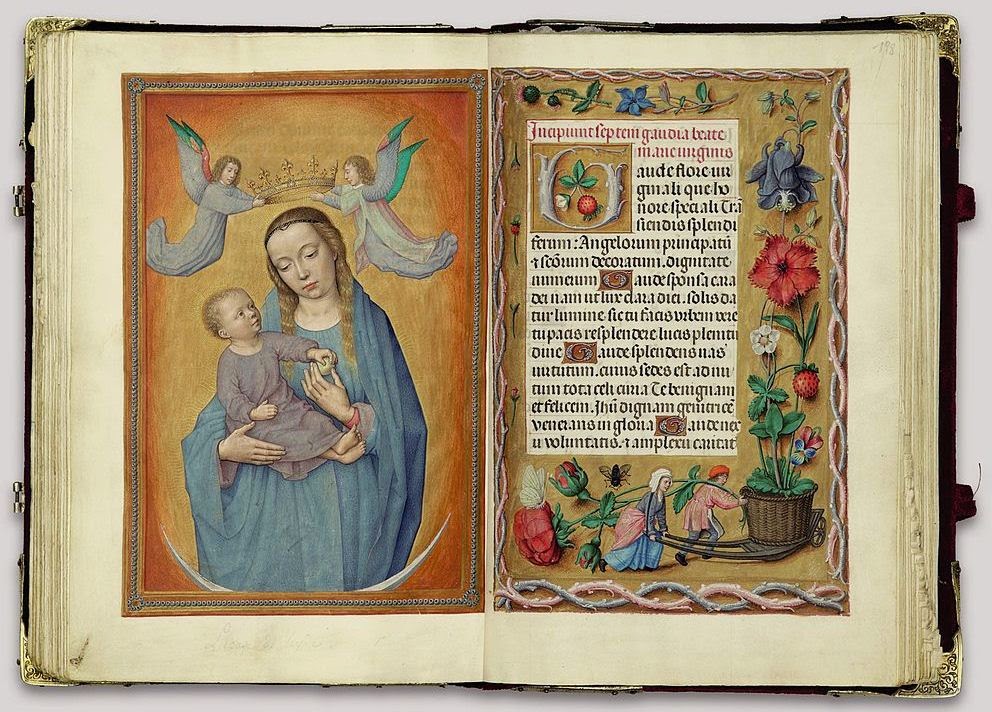 Incipiunt septem gaudia beate
marie virginis
Gaude flore vir
ginali que ho
nore speciali Trā
siendis splendi
ferum: Angelorum principatū
⁊ scōrum decoratum. dignitate
numerum Gaude sponsa cara
dei nam ut lux clara diei. solis da
tur lumine. sic tu facis orbem vere
tu pacis resplendere lucis plenitu
dine Gaude splendens uas
uirtutum. cuius sedes est ad nu
tum tota celi curia Te benignam
et felicem. Jhū dignam genitricē
venerans in gloria Gaude nex
u voluntatis. ⁊ amplexu caritat
198